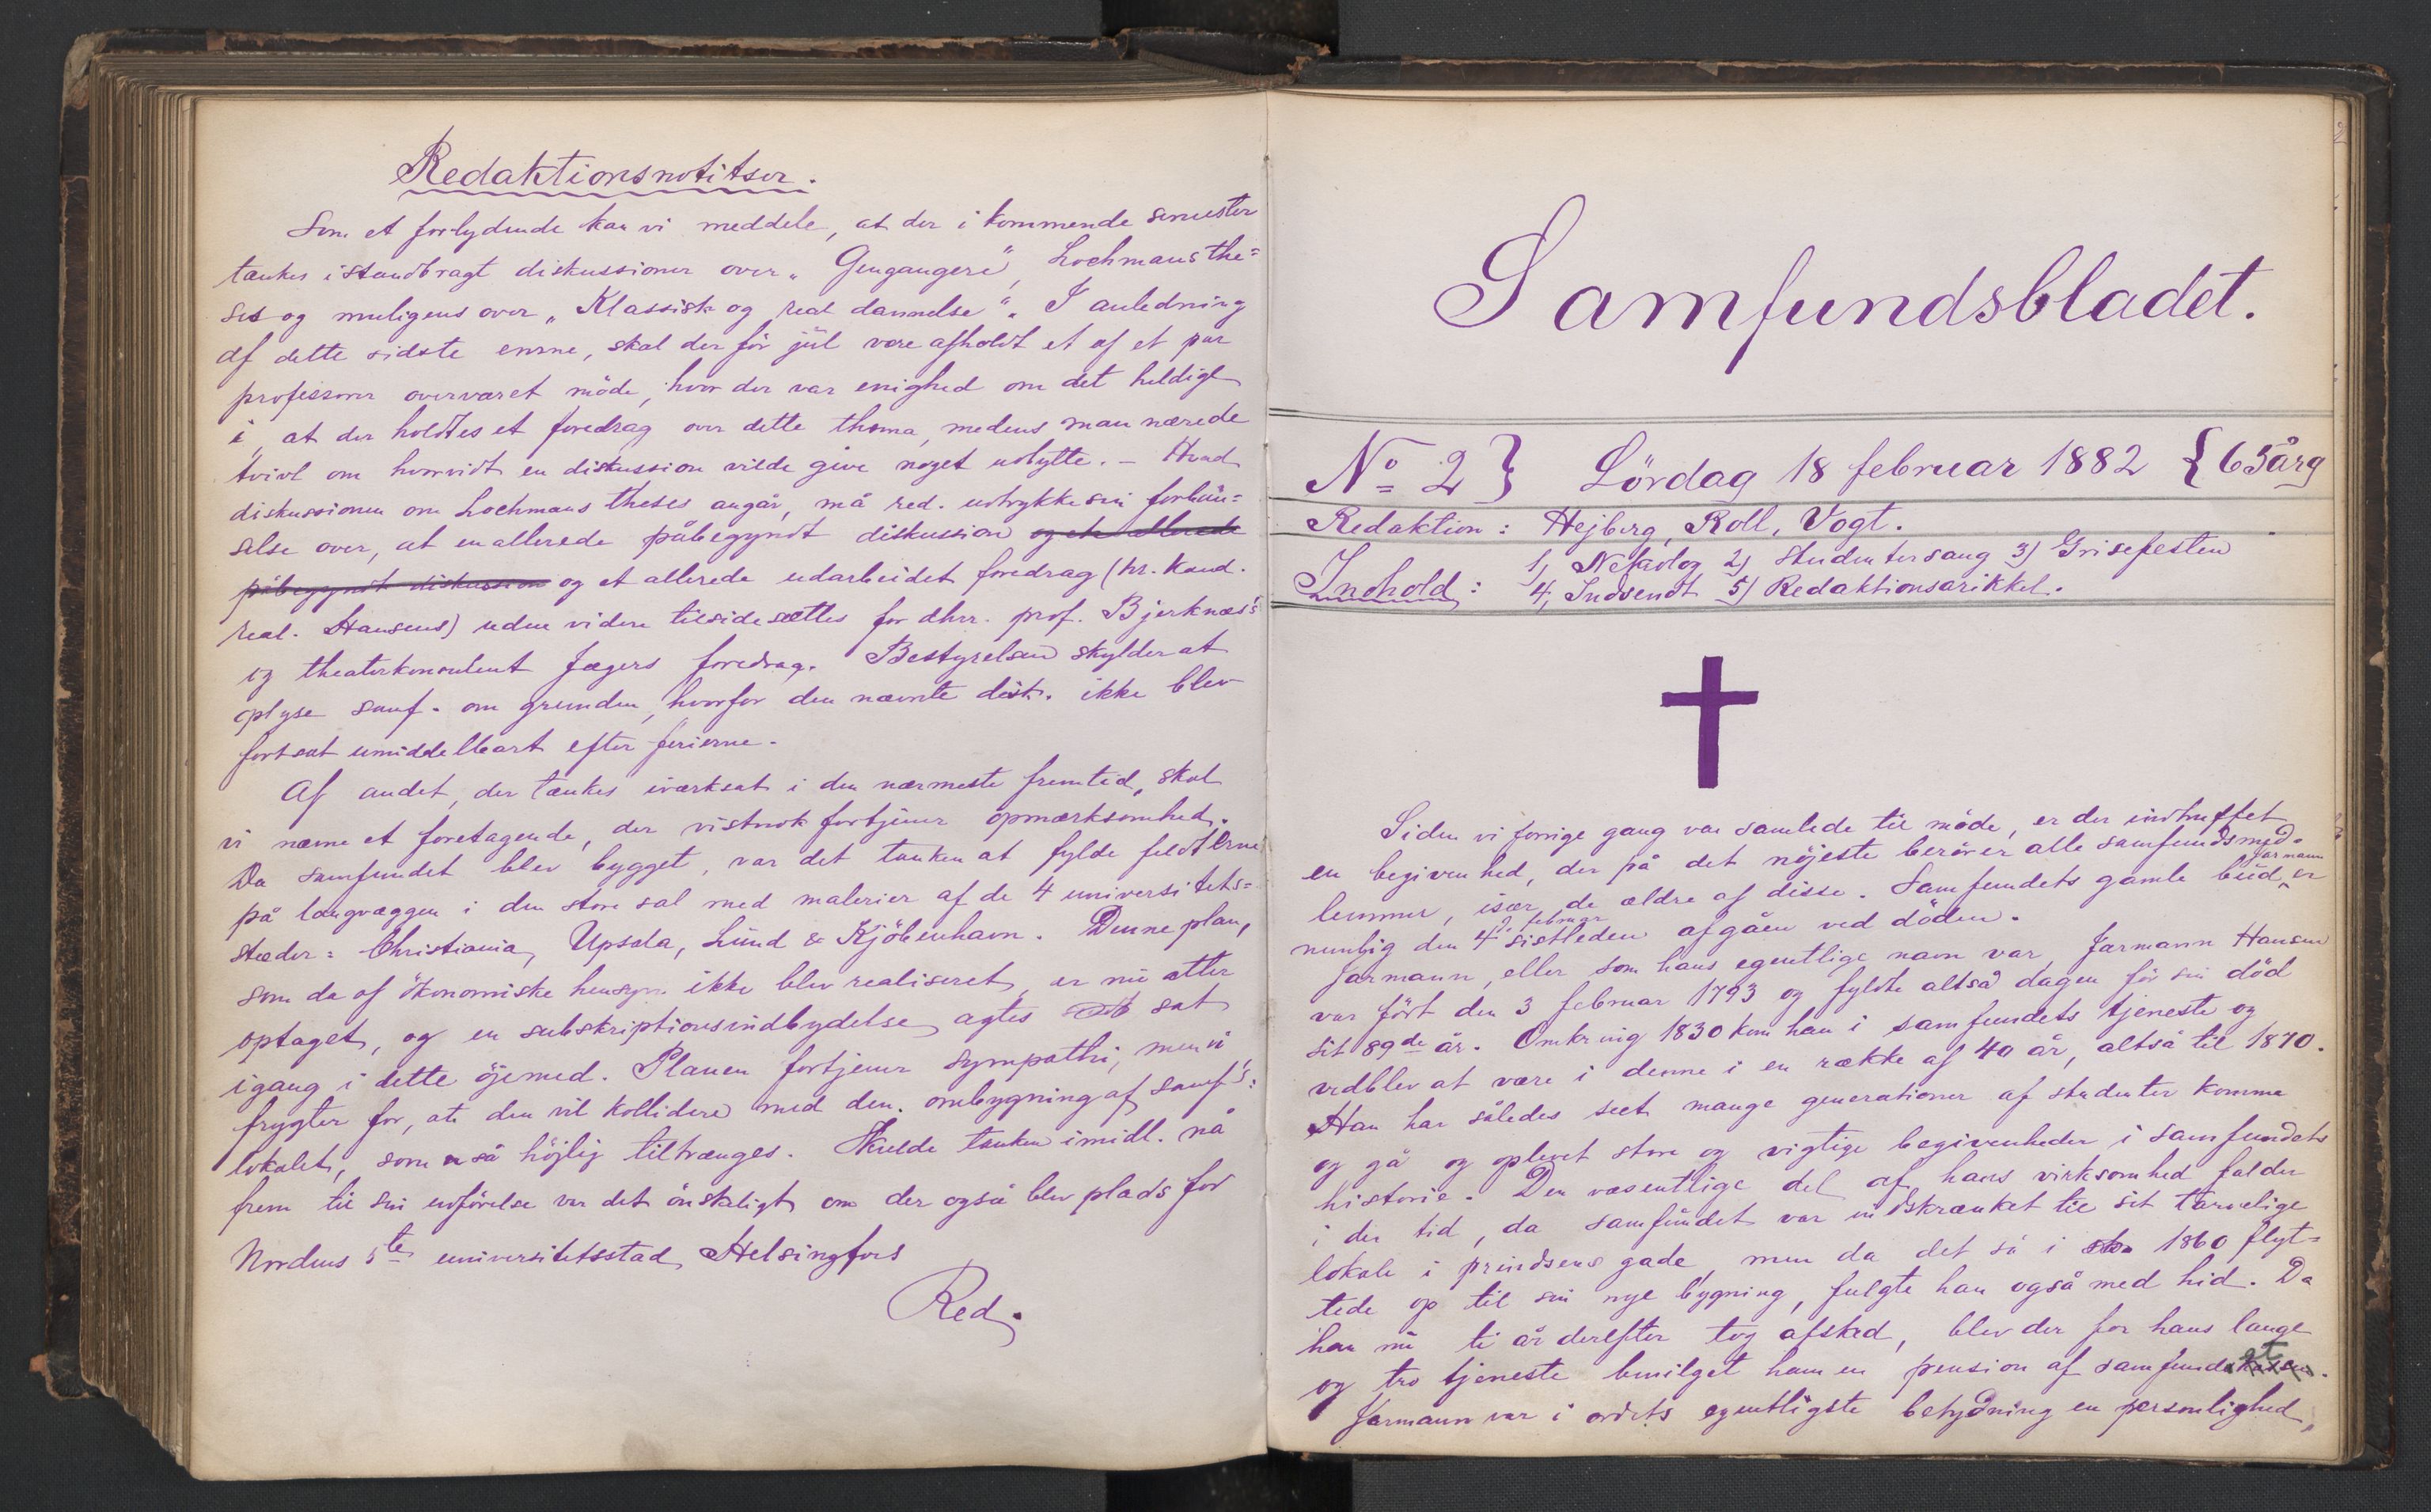 Redaktionsnotitser.
Som et forlydende kan vi meddele, at der i kommende semester
tænkes istandbragt diskussioner over „Gengangere", Lochmans the=
ses og muligens over „Klassisk og real dannelse". I anledning
af dette sidste emne, skal der för jül være afholdt et af et par
professorer overværet möde, hvor der var enighed om det heldige
i, at der holdtes et foredrag over dette thema, medens man nærede
tvivl om hvorvidt en diskussion vilde give noget udbytte. – Hvad
diskussionen om Lochmans theses angår, må red. udtrykke sin forbau=
selse over, at en allerede påbegyndt diskussion og et allerede
påbegyndt diskussion og et allerede udarbeidet foredrag (hr. kand.
real. Hansens) uden videre tilsidesættes for dhrr. prof. Bjerknæs's
og theaterkonsulent Jægers foredrag. Bestyrelsen skylder at
oplyse samf. om grunden, hvorfor den nævnte disk. ikke blev
fortsat umiddelbart efter ferierne.
Af andet, der tænkes iværksat i den nærmeste fremtid, skal
vi nævne et foretagende, der vistnok fortjener opmærksomhed.
Da samfundet blev bygget, var det tanken at fylde feldterne
på langvæggen i den store sal med malerier af de 4 universitets=
stæder: Christiania, Upsala, Lund & Kjöbenhavn. Denne plan,
som da af ökonomiske hensyn ikke blev realiseret, er nu atter
optaget, og en subskriptionsindbydelse agtes sat
igang i dette öjemed. Planen fortjener sympathi, men vi
frygter for, at den vil kollidere med den ombygning af samf's:
lokalet, som så höjlig tiltrænges. Skulde tanken imidl. nå
frem til sin udförelse var det önskeligt om der også blev plads for
Nordens 5te universitetsstad Helsingfors
Red.
Samfundsbladet.
No 2 } Lördag 18 februar 1882 { 65 årg
Redaktion: Hejberg, Roll, Vogt.
Indhold: 1, Nekrolog 2, Studentersang 3) Grisefesten
4, Indsendt 5) Redaktionsarikkel.
Siden vi forrige gang var samlede til möde, er der indtruffet
en begivenhed, der på det nöjeste berörer alle samfundsmed=
lemmer, især de ældre af disse. Samfundets gamle bud, Jarmann er
nemlig den 4. februar sistleden afgåen ved döden.
Jarmann, eller som hans egentlige navn var, Jarmann Hansen
var fört den 3 februar 1793 og fyldte altså dagen för sin död
sit 89de år. Omkring 1830 kom han i samfundets tjeneste og
vedblev at være i denne i en række af 40 år, altså til 1870.
Han har således seet mange generationer af studenter komme
og gå og oplevet store og vigtige begivenheder i samfundets
historie. Den væsentlige del af hans virksomhed falder
i den tid, da samfundet var indskrænket til sit tarvelige
lokale i prindsens gade, men da det så i 1860 flyt=
tede op til sin nye bygning, fulgte han også med hid. Da
han nu ti år derefter tog afsked, blev der for hans lange
og tro tjeneste bevilget ham en pension af samfundet.
Jarmann var i ordets egentligste betydning en personlighed,